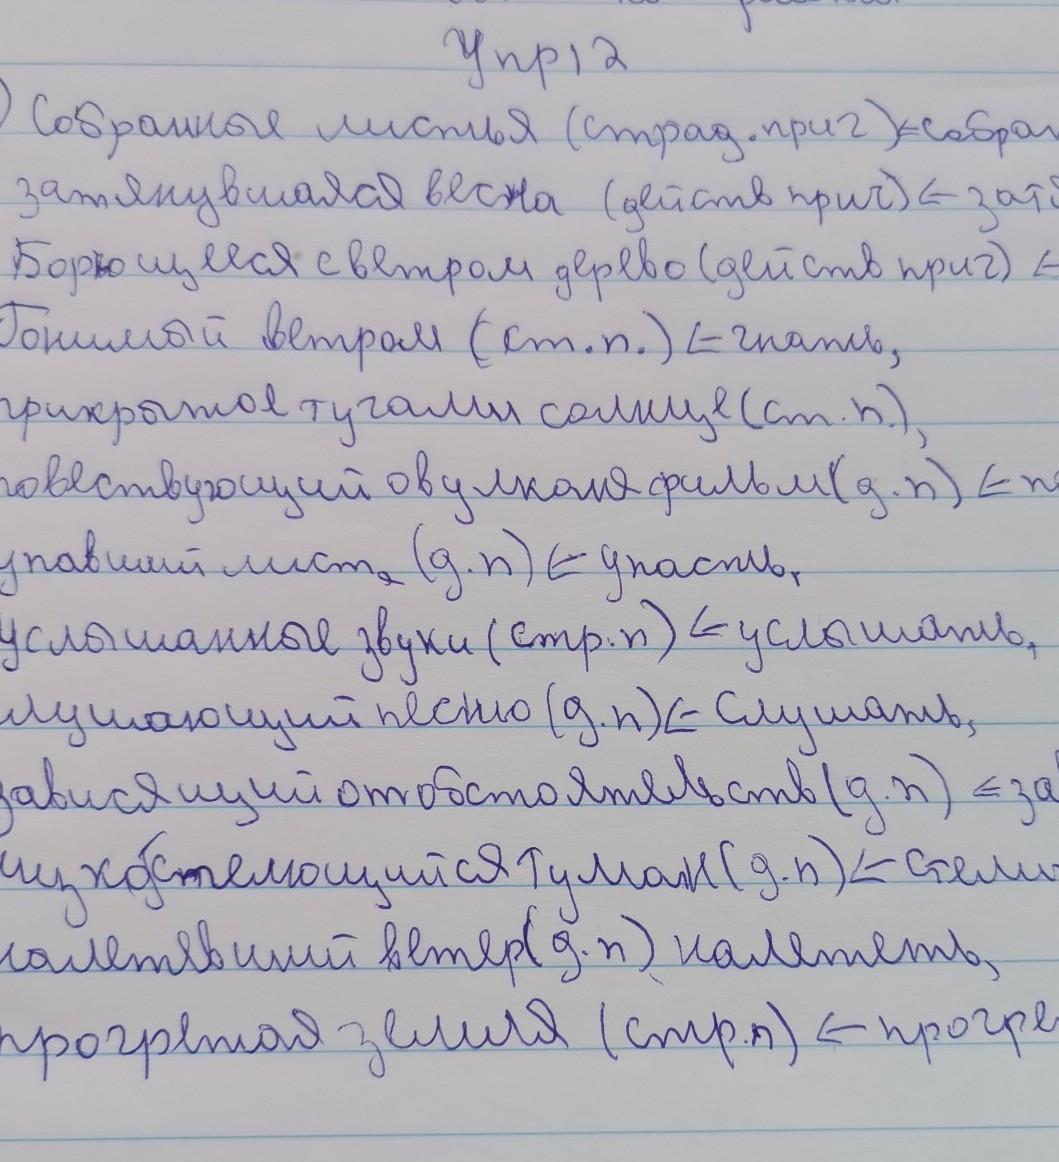 Упр12
) Собранные листья (страд.прич)⇐собран
затянувшаяся весна (действ прич)⇐затя
Борющееся с ветром дерево (действ прич) ⇐
Гонимый ветром (ст.п.) ⇐гнать,
прикрытое тучами солнце (ст.п.),
повествующий о вулкане фильм (д.п) ⇐ по
упавший лист, (д.п) ⇐ упасть,
услышанные звуки (стр.п) ⇐ услышать,
лушающий песню (д.п)⇐ Слушать,
зависящий от обстоятельств (д.п) ⇐за
низко стелющийся туман (д.п)⇐ стели
налетевший ветер (д.п) налететь,
прогретая земля (стр.п) ⇐ прогре